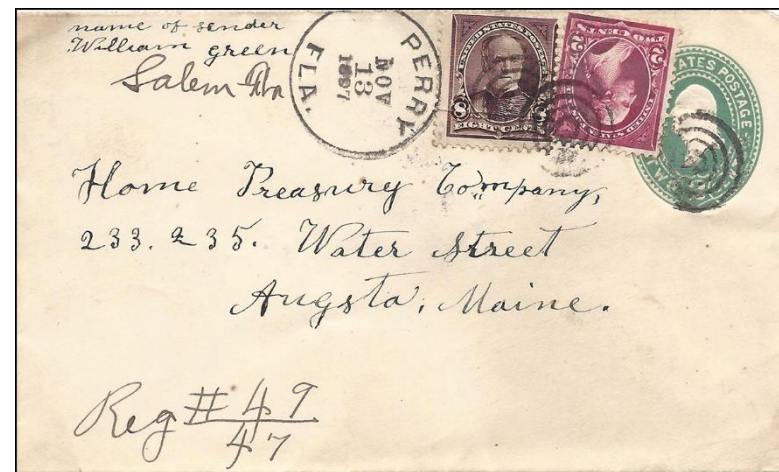 name of sender
William green
Salem Fla
PERRY
NOV
13
1897
FLA.
UNITED STATES POSTAGE
8
EIGHT CENTS
2
TWO CENTS
UNITED STATES
ATES POSTAGE
Home Treasury Company,
233. 235. Water Street
Augsta, Maine.
Reg # 49
47